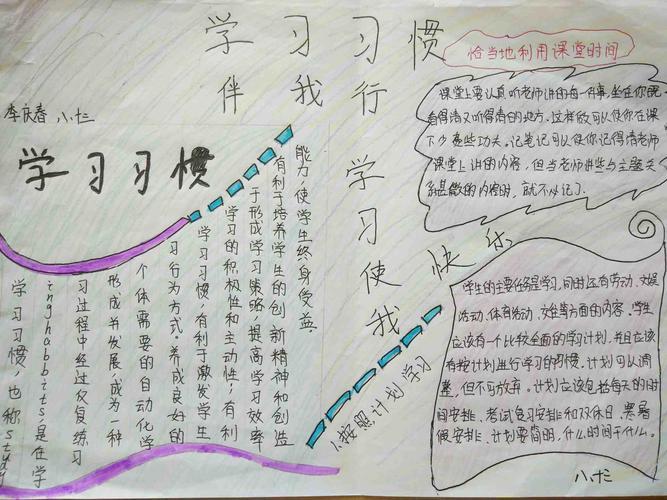 学习习惯
伴我行
李庆春 八、十三
学习习惯
学习习惯，也称study
inghabbits,是在学
习过程中经过反复练习
形成并发展，成为一种
个体需要的自动化学
习行为方式。养成良好的
学习习惯，有利于激发学生
学习的积极性和主动性；有利
于形成学习策略，提高学习效率
有利于培养学生的创新精神和创造
能力，使学生终身受益。
学习使我
快乐
恰当地利用课堂时间
课堂上要认真听老师讲的每一件事，坐在你能
看得清又听得清的地方。这样做可以使你在课
下少费些功夫。记笔记可以使你记得清老师
课堂上讲的内容，但当老师讲些与主题关
系甚微的内容时，就不必记了。
1、按照计划学习
学生的主要任务是学习，同时还有劳动、文娱
活动、体育活动、交往等方面的内容。学生
应该有一个比较全面的学习计划，并且应该
有按计划进行学习的习惯。计划可以调
整，但不可放弃。计划应该包括每天的时
间安排、考试复习安排和双休日、寒暑
假安排。计划要简明，什么时间干什么。
八、十三